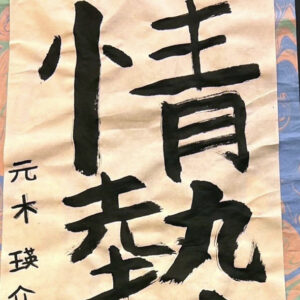 情熱
元木 瑛介